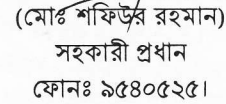 (মোঃ শফিউর রহমান)
সহকারী প্রধান
ফোনঃ ৯৫৪০৫২৫।